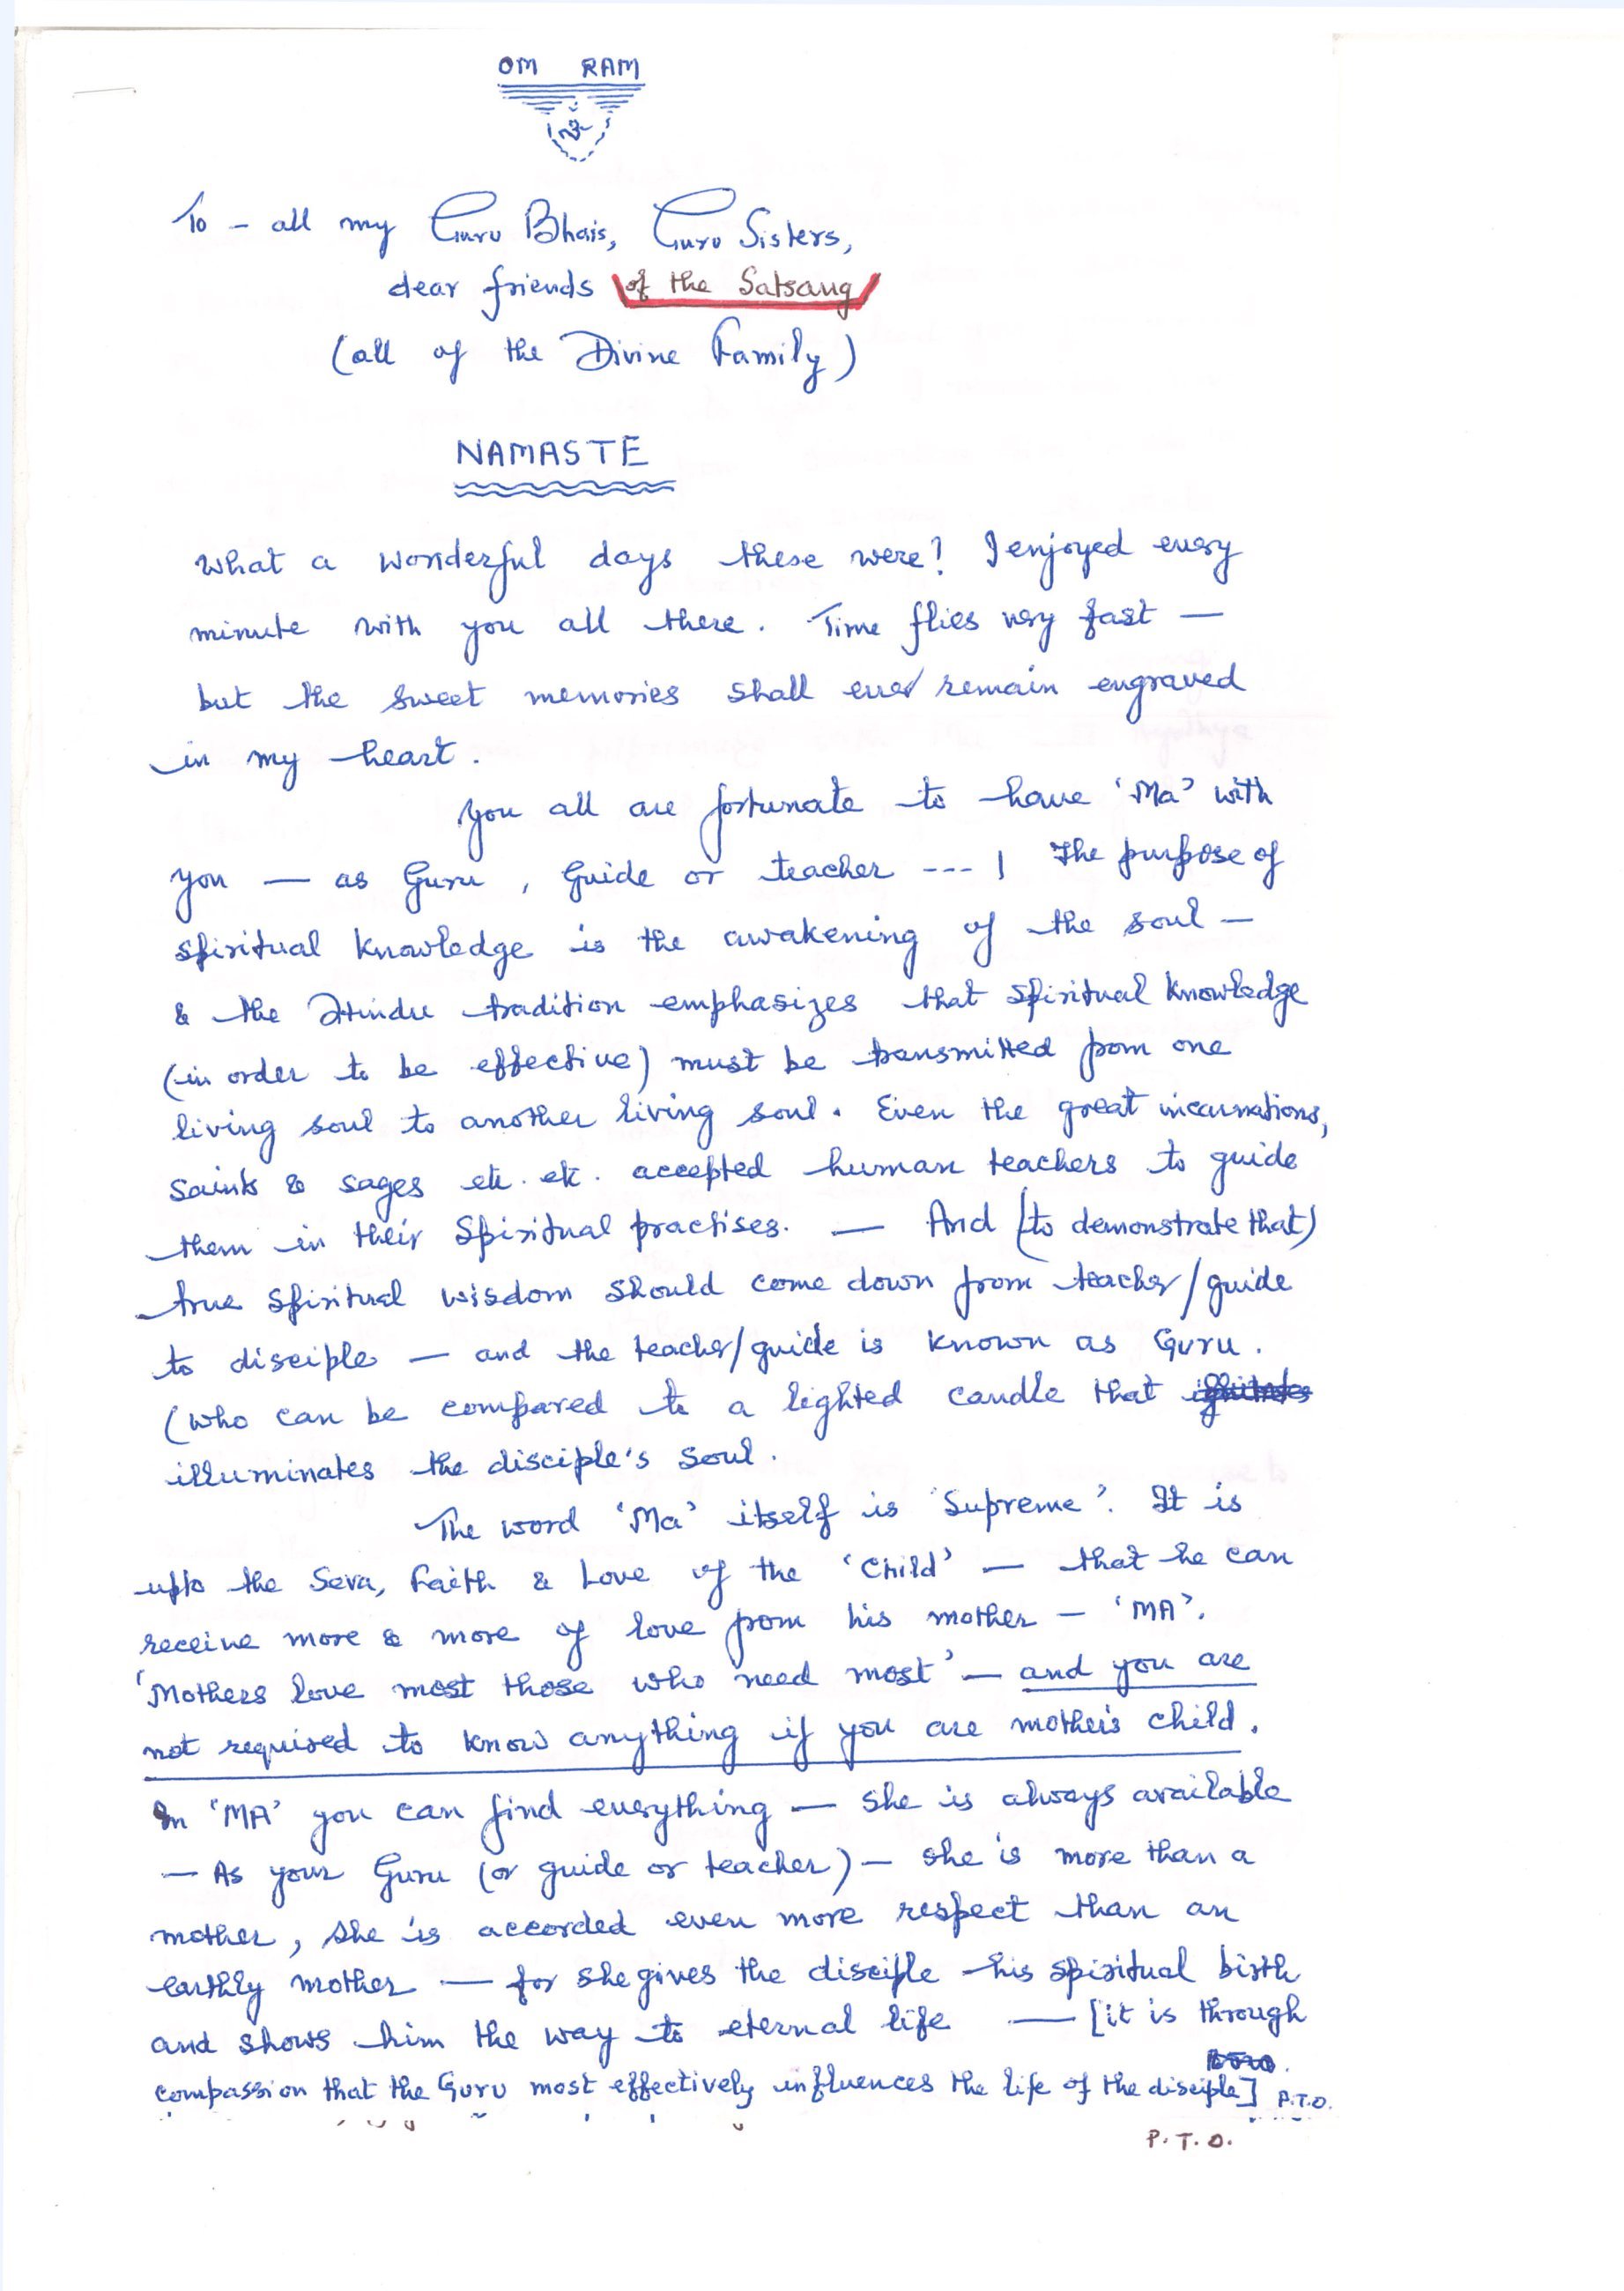 OM RAM
To - all my Guru Bhais, Guru Sisters,
dear friends of the Satsang
(all of the Divine Family)
NAMASTE
What a wonderful days these were! I enjoyed every
minute with you all there. Time flies very fast —
but the sweet memories shall ever remain engraved
in my heart.
You all are fortunate to have 'Ma' with
you — as Guru, Guide or teacher --- ! The purpose of
spiritual knowledge is the awakening of the soul —
& the Hindu tradition emphasizes that spiritual knowledge
(in order to be effective) must be transmitted from one
living soul to another living soul. Even the great incarnations,
saints & sages etc. etc. accepted human teachers to guide
them in their Spiritual practises. — And (to demonstrate that)
true spiritual wisdom should come down from teacher/guide
to disciple — and the teacher/guide is known as Guru.
(who can be compared to a lighted candle that
illuminates the disciple's soul.
The word 'Ma' itself is 'Supreme'. It is
upto the Seva, Faith & Love of the 'Child' — that he can
receive more & more of love from his mother — 'MA'.
'Mothers love most those who need most' — and you are
not required to know anything if you are mother's child.
In 'MA' you can find everything — she is always available
— As your Guru (or guide or teacher) — she is more than a
mother, she is accorded even more respect than an
earthly mother — for she gives the disciple his spiritual birth
and shows him the way to eternal life — [it is through
compassion that the Guru most effectively influences the life of the disciple] P.T.O.
P.T.O.